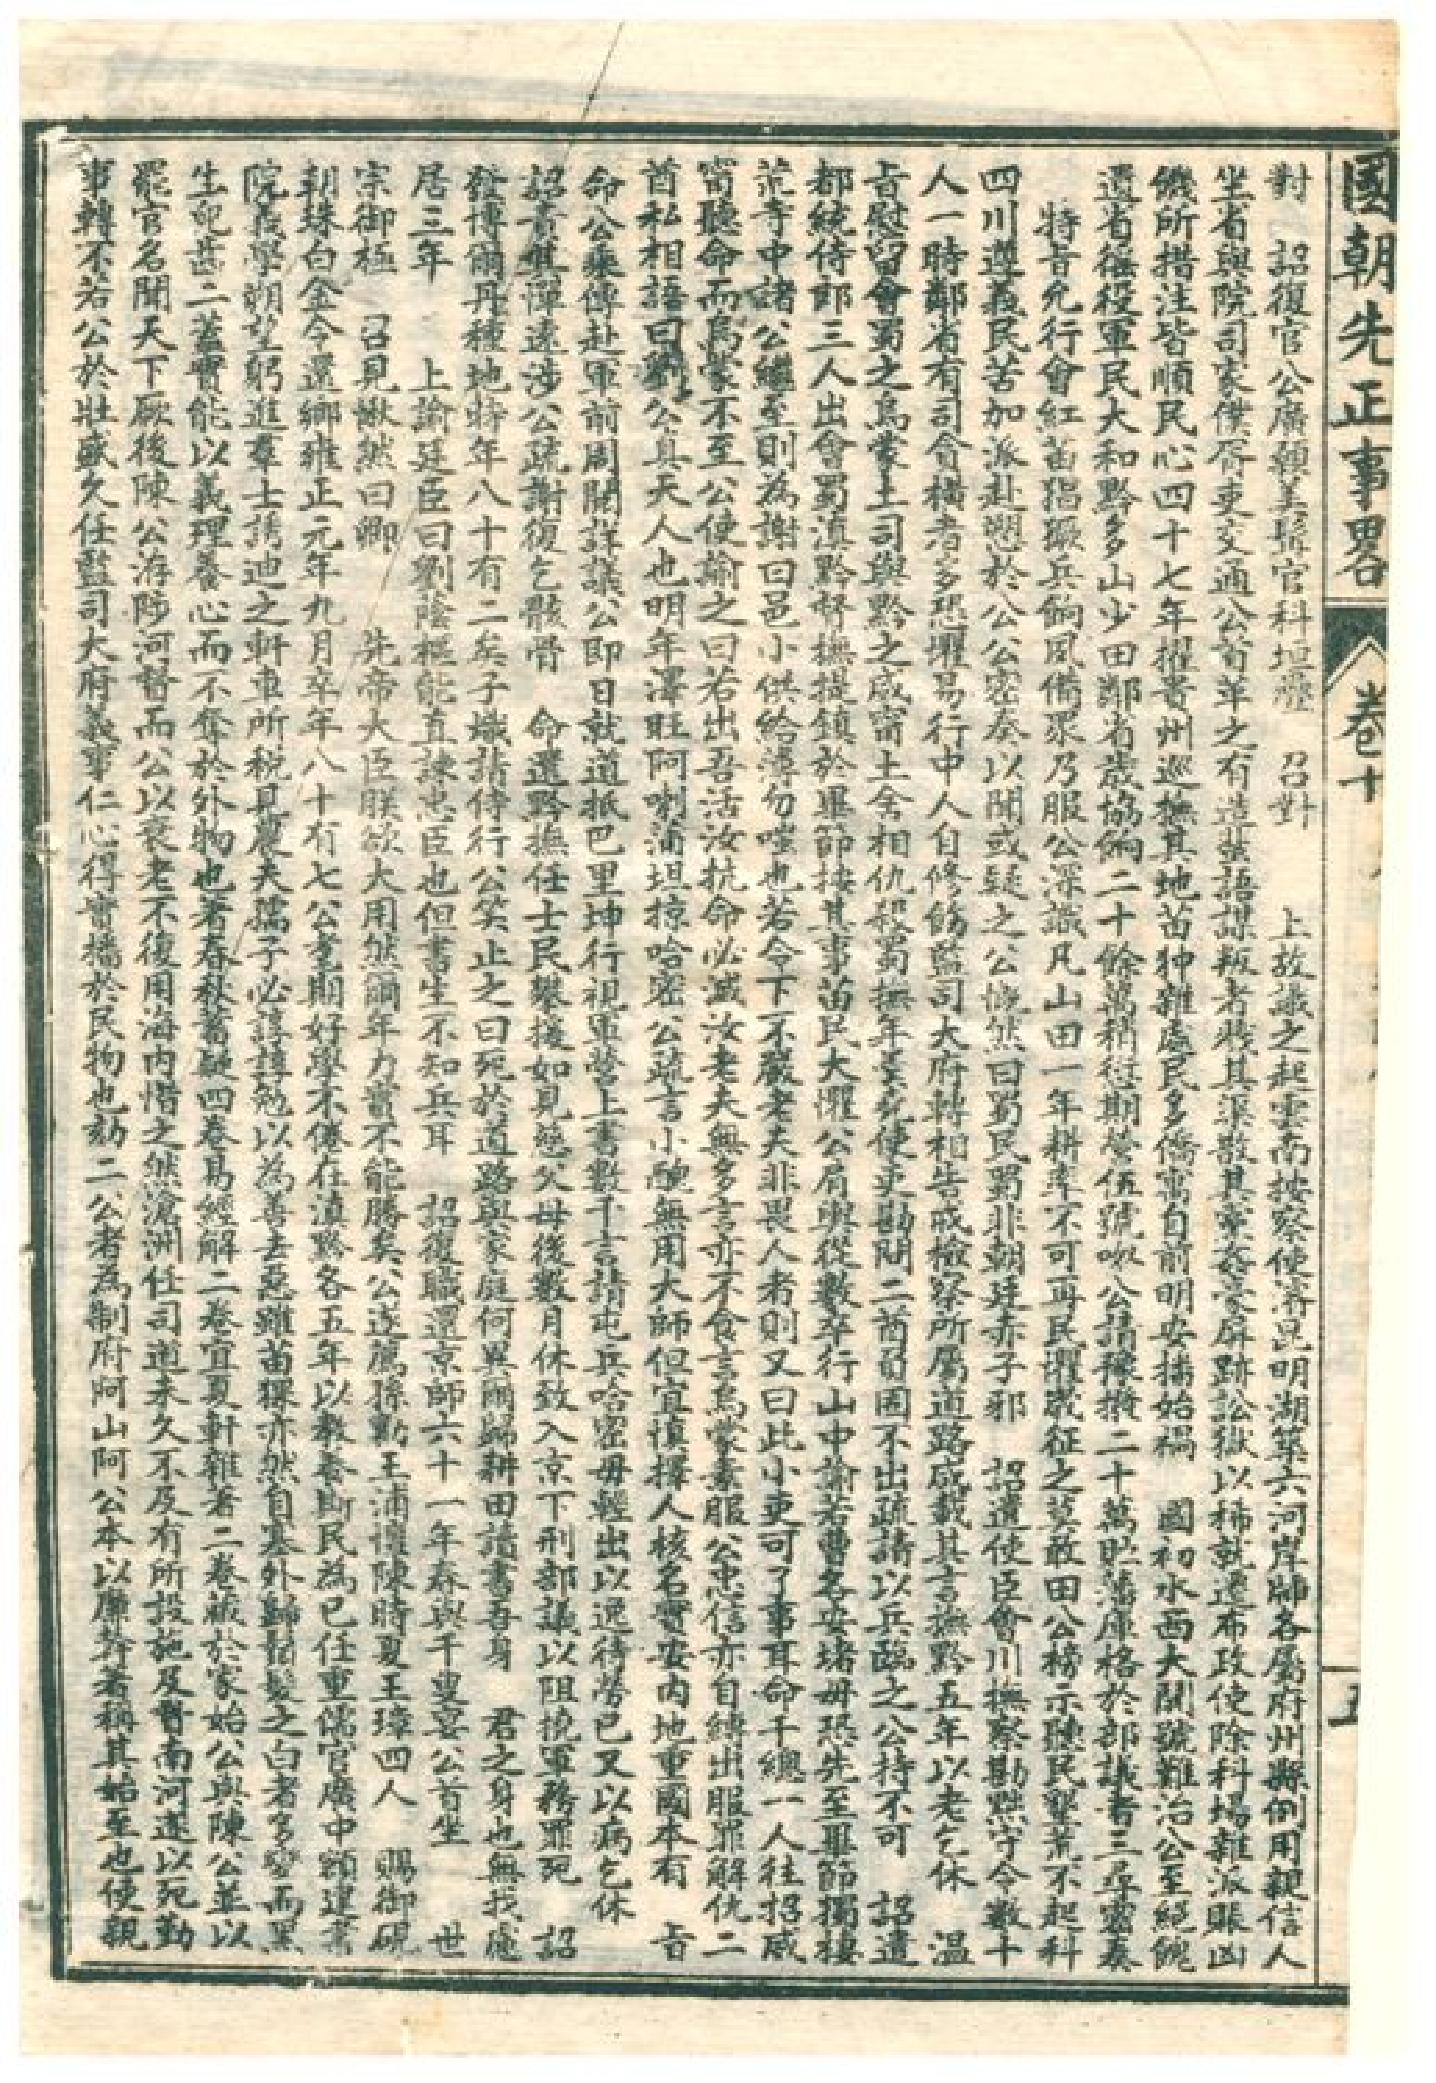 國朝先正事畧 卷十 五
對 詔復官公廣顙美髯官科垣歷 召對 上故識之起雲南按察使濬昆明湖築六河岸肺各屬府州縣例用親信人
坐省與院司家僕胥吏交通公首革之有造蜚語謀叛者殲其渠散其黨姦豪屏跡訟獄以稀就遷布政使除科場雜派賬凶
饑所措注皆順民心四十七年擢貴州巡撫其地苗狆雜處民多僑寓自前明安播始禍 國初水西大鬧號難治公至絕餽
遺省徭役軍民大和黔多山少田鄰省歲協餉二十餘萬稍愆期營伍號呶公請豫撥二十萬貯藩庫格於部議者三尋密奏
特旨允行會紅苗猖獗兵餉夙備眾乃服公深識凡山田一年耕率不可再民懼歲征之莫敢田公榜示聽民墾荒不起科
四川遵義民苦加派赴愬於公公密奏以聞或疑之公慨然曰蜀民蜀非朝廷赤子邪 詔遣使臣會川撫察勘黜守令數十
人一時鄰省有司貪橫者多恐懼易行中人自修飭監司大府轉相告戒檢察所屬道路咸載其言撫黔五年以老乞休 溫
旨慰留會蜀之烏蒙土司與黔之威甯土舍相仇殺蜀撫年羹堯使吏勘問二酋負固不出疏請以兵臨之公持不可 詔遣
都統侍郎三人出會蜀滇黔督撫提鎮於畢節按其事苗民大懼公肩輿從數卒行山中諭若曹各安堵毋恐先至畢節獨棲
荒寺中諸公繼至則為謝曰邑小供給薄勿嗤也若令下不嚴老夫非畏人者則又曰此小吏可了事耳命千總一人往招威
甯聽命而烏蒙不至公使諭之曰若出吾活汝抗命必滅汝老夫無多言亦不食言烏蒙素服公忠信亦自縛出服罪解仇二
酋私相語曰劉公真天人也明年澤旺阿喇蒲坦掠哈密公疏言小醜無用大師但宜慎擇人核名實安內地重國本有 旨
命公乘傳赴軍前周閱詳議公即日就道抵巴里坤行視軍營上書數千言請屯兵哈密毋輕出以逸待勞已又以病乞休
詔責其憚遠涉公疏謝復乞骸骨 命還黔撫任士民攀援如見慈父母後數月休致入京下刑部議以阻撓軍務罪死 詔
發博爾丹種地時年八十有二矣子熾請侍行公笑止之曰死於道路與家庭何異爾歸耕田讀書吾身 君之身也無找慮
居三年 上諭廷臣曰劉蔭樞能直諫忠臣也但書生不知兵耳 詔復職還京師六十一年春與千叟宴公首坐 世
宗御極 召見愀然曰卿 先帝大臣朕欲大用然爾年力實不能勝矣公遂薦孫勷王沛檀陳時夏王璋四人 賜御硯
朝珠白金令還鄉雍正元年九月卒年八十有七公耄期好學不倦在滇黔各五年以教養斯民為己任重儒官廣中額建書
院義學朔望躬進羣士誘迪之軒車所稅見農夫孺子必諄諄勉以為善去惡雖苗猓亦然自塞外歸鬚髮之白者多變而黑
生兒齒二蓋實能以義理養心而不奪於外物也著春秋蓄疑四卷易經解二卷宜夏軒雜著二卷藏於家始公與陳公並以
罷官名聞天下厥後陳公洊陟河督而公以衰老不復用海內惜之然滄洲任司道未久不及有所設施及督南河遂以死勤
事轉不若公於壯盛久任監司大府義事仁心得實播於民物也劾二公者為制府阿山阿公本以廉幹著稱其始至也使親